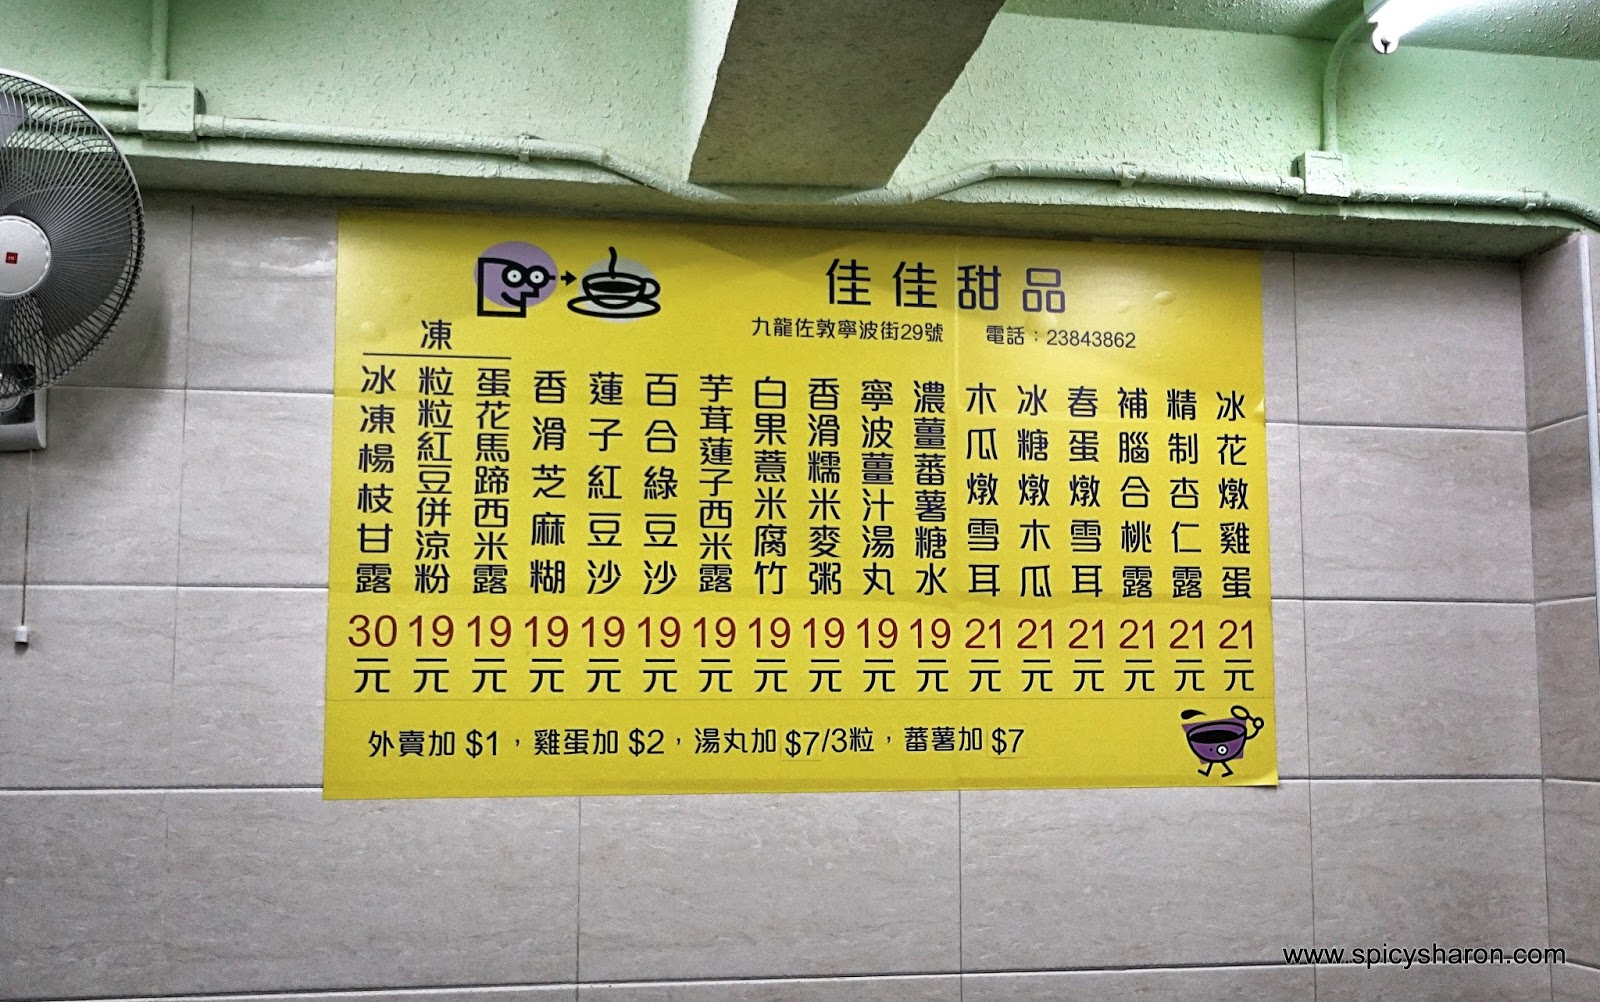 佳佳甜品
九龍佐敦寧波街29號 電話：23843862
凍
冰花燉雞蛋 21元
精制杏仁露 21元
補腦合桃露 21元
春蛋燉雪耳 21元
冰糖燉木瓜 21元
木瓜燉雪耳 21元
濃薑蕃薯糖水 19元
寧波薑汁湯丸 19元
香滑糯米麥粥 19元
白果薏米腐竹 19元
芋茸蓮子西米露 19元
百合綠豆沙 19元
蓮子紅豆沙 19元
香滑芝麻糊 19元
蛋花馬蹄西米露 19元
粒粒紅豆併涼粉 19元
冰凍楊枝甘露 30元
外賣加 $1，雞蛋加 $2，湯丸加 $7/3粒，蕃薯加 $7
www.spicysharon.com